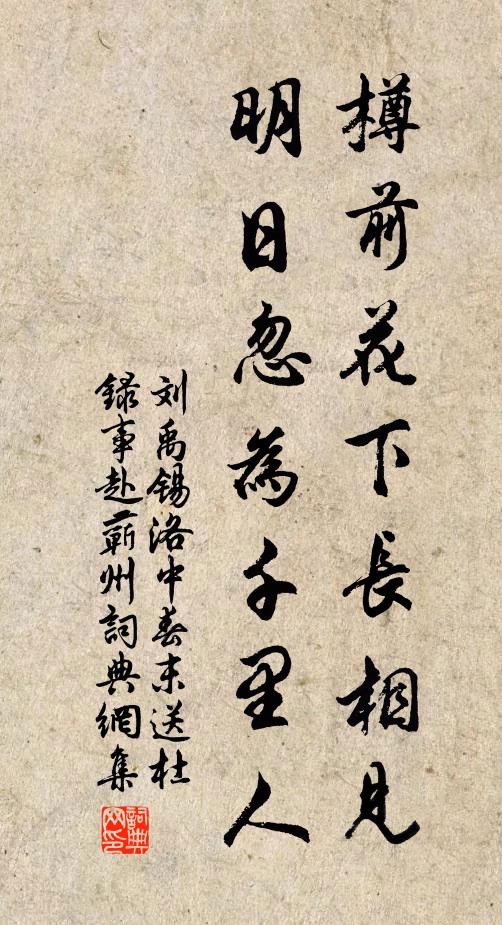 樽前花下長相見
明日忽為千里人
刘禹锡洛中春末送杜
録事赴蕲州詞典網集
詞典網印